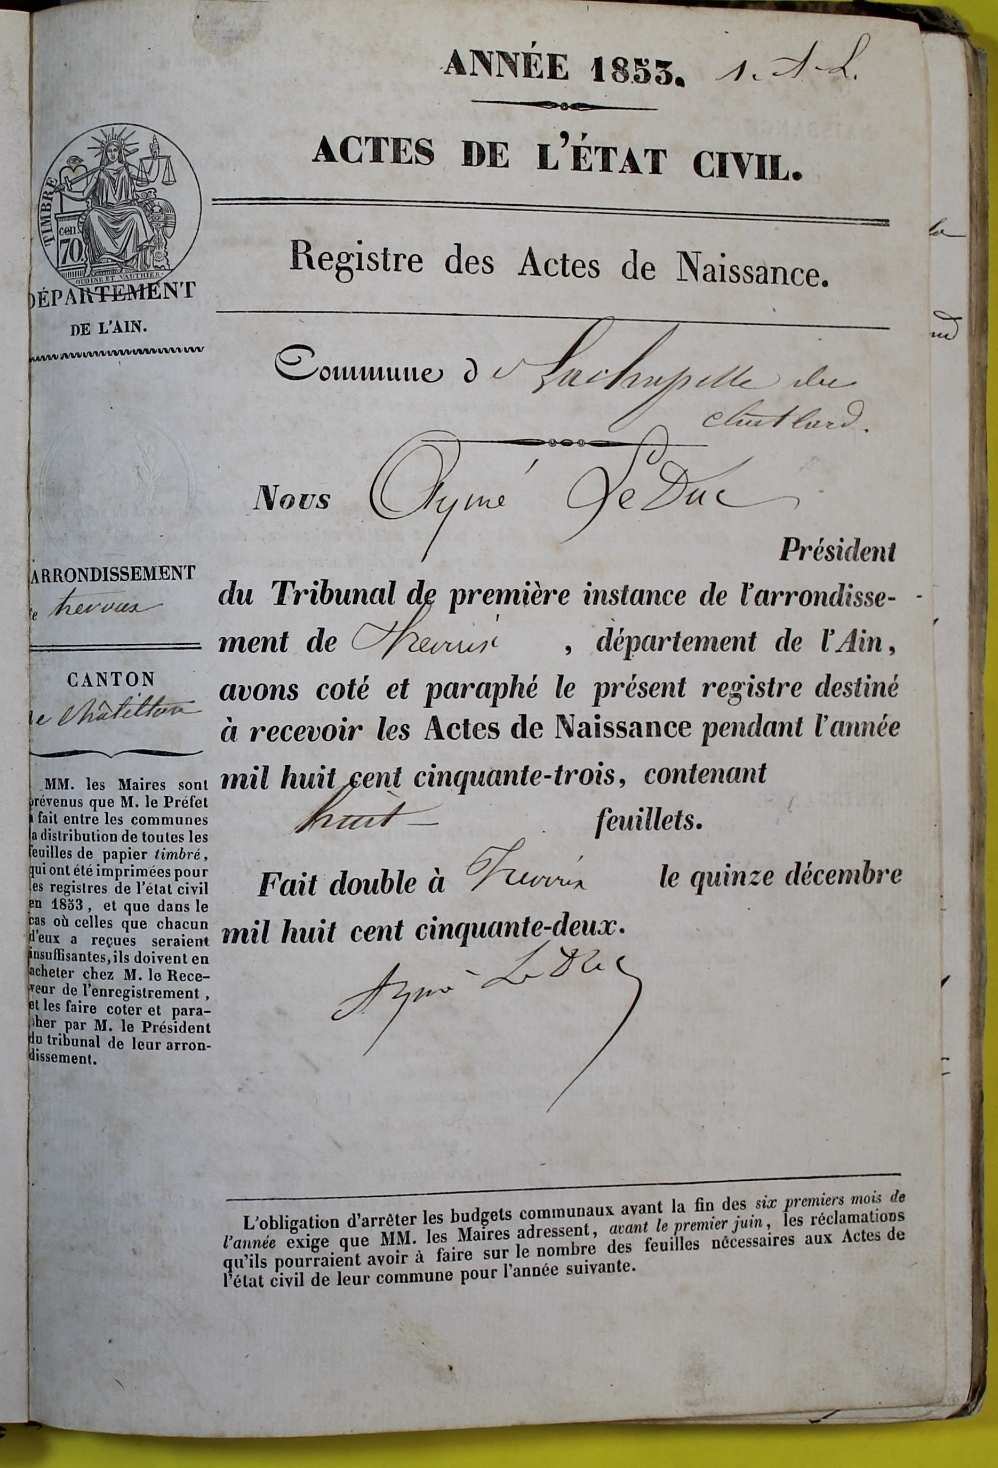 ANNÉE 1853. 1. A. L.
ACTES DE L'ÉTAT CIVIL.
Registre des Actes de Naissance.
Commune de Lachapelle du
chatelard.
Nous Aymé LeDuc
Président
du Tribunal de première instance de l'arrondisse-
ment de Trévoux, département de l'Ain,
avons coté et paraphé le présent registre destiné
à recevoir les Actes de Naissance pendant l'année
mil huit cent cinquante-trois, contenant
huit feuillets.
Fait double à Trévoux le quinze décembre
mil huit cent cinquante-deux.
Aymé LeDuc
L'obligation d'arrêter les budgets communaux avant la fin des six premiers mois de
l'année exige que MM. les Maires adressent, avant le premier juin, les réclamations
qu'ils pourraient avoir à faire sur le nombre des feuilles nécessaires aux Actes de
l'état civil de leur commune pour l'année suivante.
TIMBRE
cen
70
OUDINÉ ET VAUTHIER
DÉPARTEMENT
DE L'AIN.
ARRONDISSEMENT
de trevoux
CANTON
de Châtillon
MM. les Maires sont
prévenus que M. le Préfet
a fait entre les communes
la distribution de toutes les
feuilles de papier timbré,
qui ont été imprimées pour
les registres de l'état civil
en 1853, et que dans le
cas où celles que chacun
d'eux a reçues seraient
insuffisantes, ils doivent en
acheter chez M. le Rece-
veur de l'enregistrement,
et les faire coter et para-
pher par M. le Président
du tribunal de leur arron-
dissement.